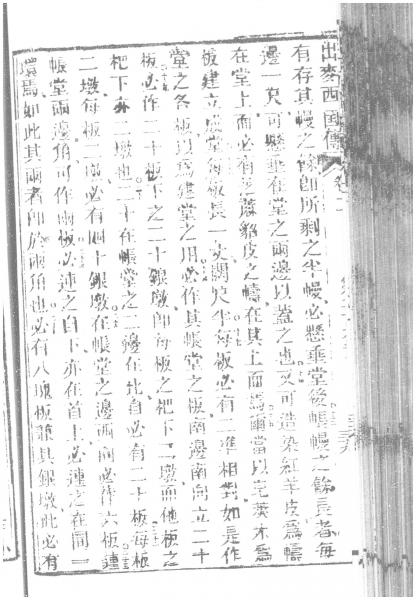 出麥西国傳 卷二
有存其幔之餘卽所剩之半幔必懸垂堂後帳幔之餘長者每
邊一尺可懸垂在堂之兩邊以蓋之也又可造染紅羊皮為幬
在堂上面必有貂皮之幬在其上面焉爾當以木為
板建立成堂每板長一丈闊尺半每板必有二準相對如是作
堂之各板以為建堂之用必作其帳堂之板南邊南向立二十
板必作二十板下之二十銀墩卽每板之杷下二墩而他板之
杷下亦二墩也二十在帳堂之二邊在北自必有二十板每板
二墩每板二墩必有四十銀墩在帳堂之邊西向必作六板建
帳堂兩邊角可作兩板必連之自下亦在首上必連之在同一
環焉如此其兩者卽於兩角也必有八塊板兼其銀墩此必有